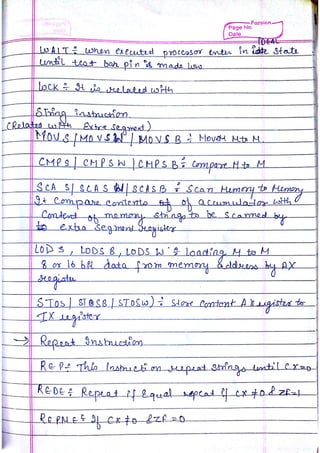 Page No.
Date
IDEAL
WAIT : when executed processor enter in idle state
until test bar pin is made low
LOCK : It is related with
String instruction
(Related with Extra segment)
MOVS / MOVSW / MOVSB : Move M to M.
CMPS / CMPSW / CMPSB : Compare M to M
SCA S / SCAS W / SCASB : Scan Memory to Memory
It compare contents of accumulator with
Content of memory strings to be scanned by
to extra segment register
LOD S, LODS B, LODS W : loading M to M
8 or 16 bit data from memory address by AX
register
STOS / STOSB / STOSW) : store content A register to
IX register
→ Repeat Instruction
REP : This Instruction repeat strings until CX=0
REDE : Repeat if Equal repeat if CX ≠ 0 & ZF=1
REPNE : If CX ≠ 0 & ZF = 0